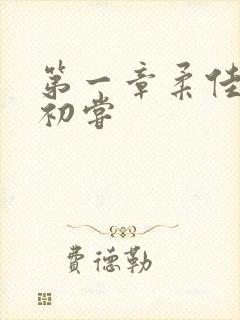 第一章柔佳
初尝
费德勒